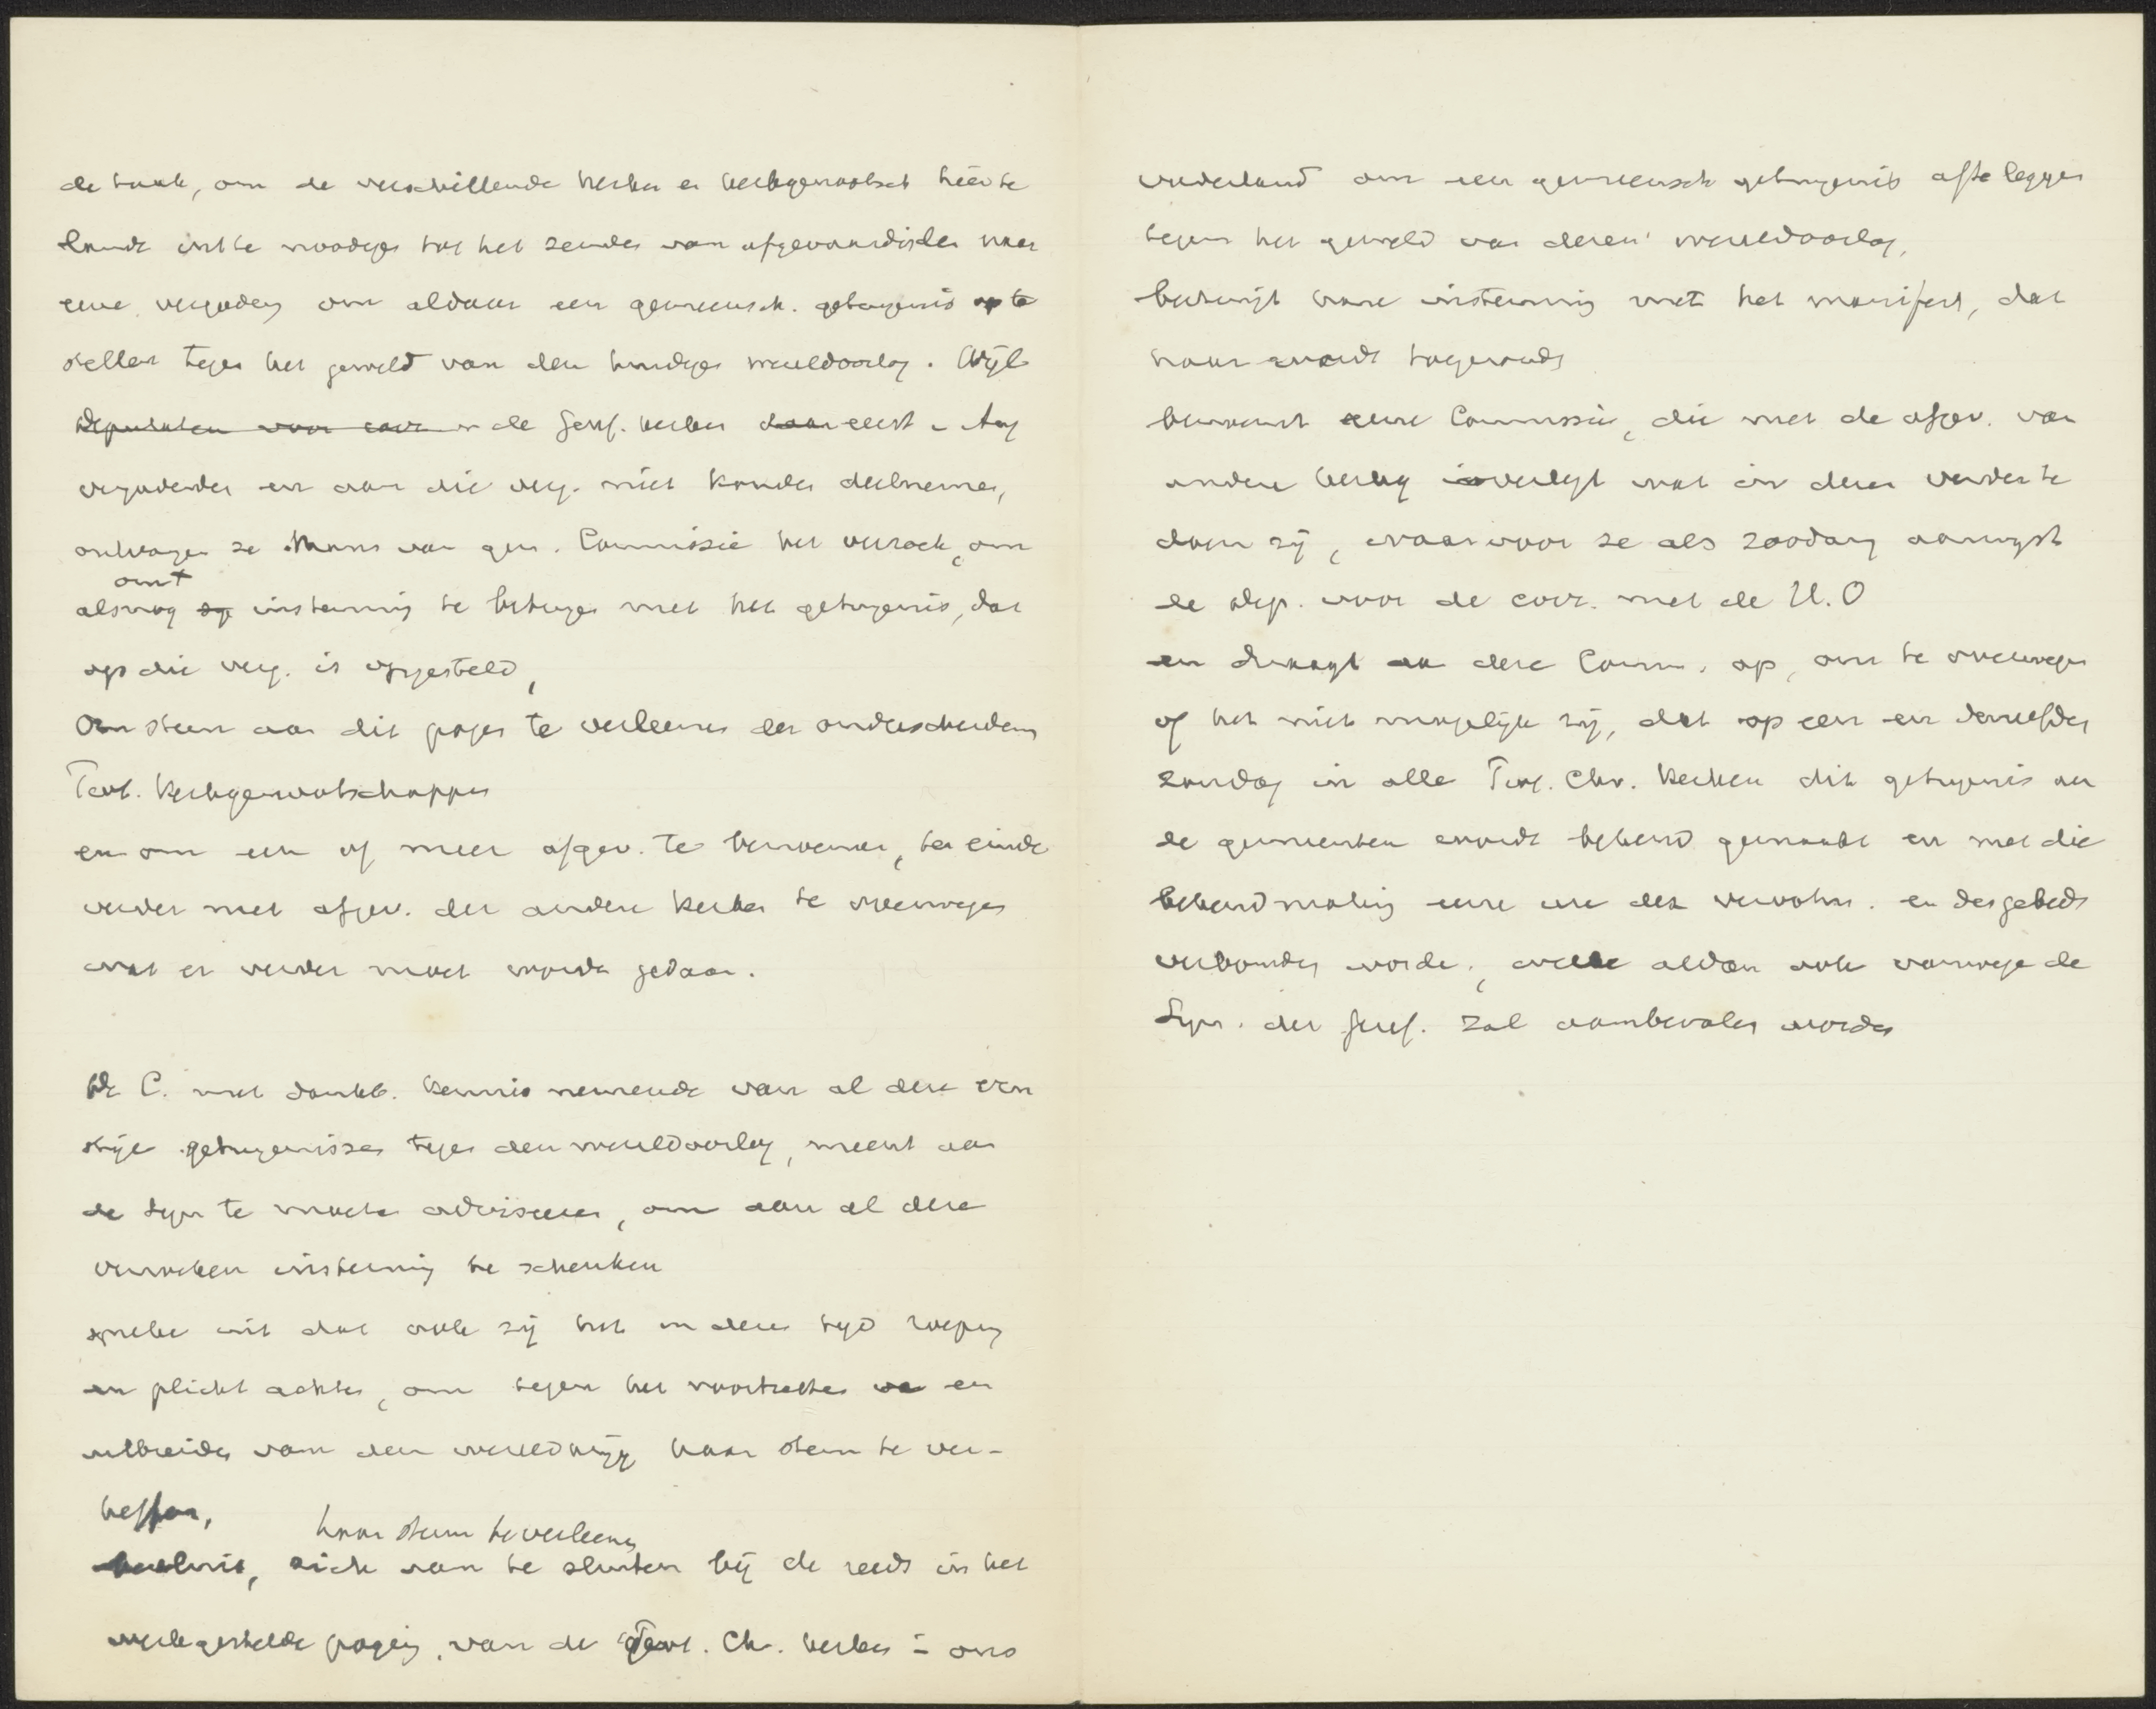 de taak, om de verschillende kerken en kerkgenootsch hier te
lande uit te noodigen tot het zenden van afgevaardigden naar
eene vergadering om aldaar een gemeensch. getuigenis op te
stellen tegen het geweld van den huidigen wereldoorlog. Wijl
deputaten voor corr. de Geref. kerken daar eerst in Aug
vergaderden en aan die verg. niet konden deelnemen,
ontvangen ze thans van gen. Commissie het verzoek, om
alsnog instemming te betuigen met het getuigenis, dat
op die verg. is opgesteld,
Om steun aan dit pogen te verleenen der onderscheidene
Prot. Kerkgenootschappen
en om een of meer afgev. te benoemen, ten einde
verder met afgev. der andere kerken te overwegen
wat er verder moet worden gedaan.
De C. met dankb. kennis nemende van al deze ern
stige getuigenissen tegen den wereldoorlog, meent aan
de Syn te moeten adviseeren, om aan al deze
verzoeken instemming te schenken
spreke uit dat ook zij het in dezen tijd roeping
en plicht achten, om tegen het voortzetten en
uitbreiden van den wereldkrijg haar stem te ver-
heffen,
haar steun te verleenen
besluit, zich aan te sluiten bij de reeds in het
werk gestelde poging van de Prot. Chr. kerken in ons
vaderland om een gemeensch getuigenis af te leggen
tegen het geweld van dezen wereldoorlog,
betuigt hare instemming met het manifest, dat
haar wordt toegezonden
benoemt eene Commissie, die met de afgev. van
andere kerken overlegt wat in dezen verder te
doen zij, waarvoor ze als zoodanig aanwijst
de dep. voor de corr. met de H. O
en draagt deze Comm. op, om te overwegen
of het niet mogelijk zij, dat op een en denzelfden
zondag in alle Prot. Chr. Kerken dit getuigenis aan
de gemeenten wordt bekend gemaakt en met die
bekendmaking eene ure der verootm. en des gebeds
verbonden worde, welke aldan ook vanwege de
Syn. der Geref. zal aanbevolen worden